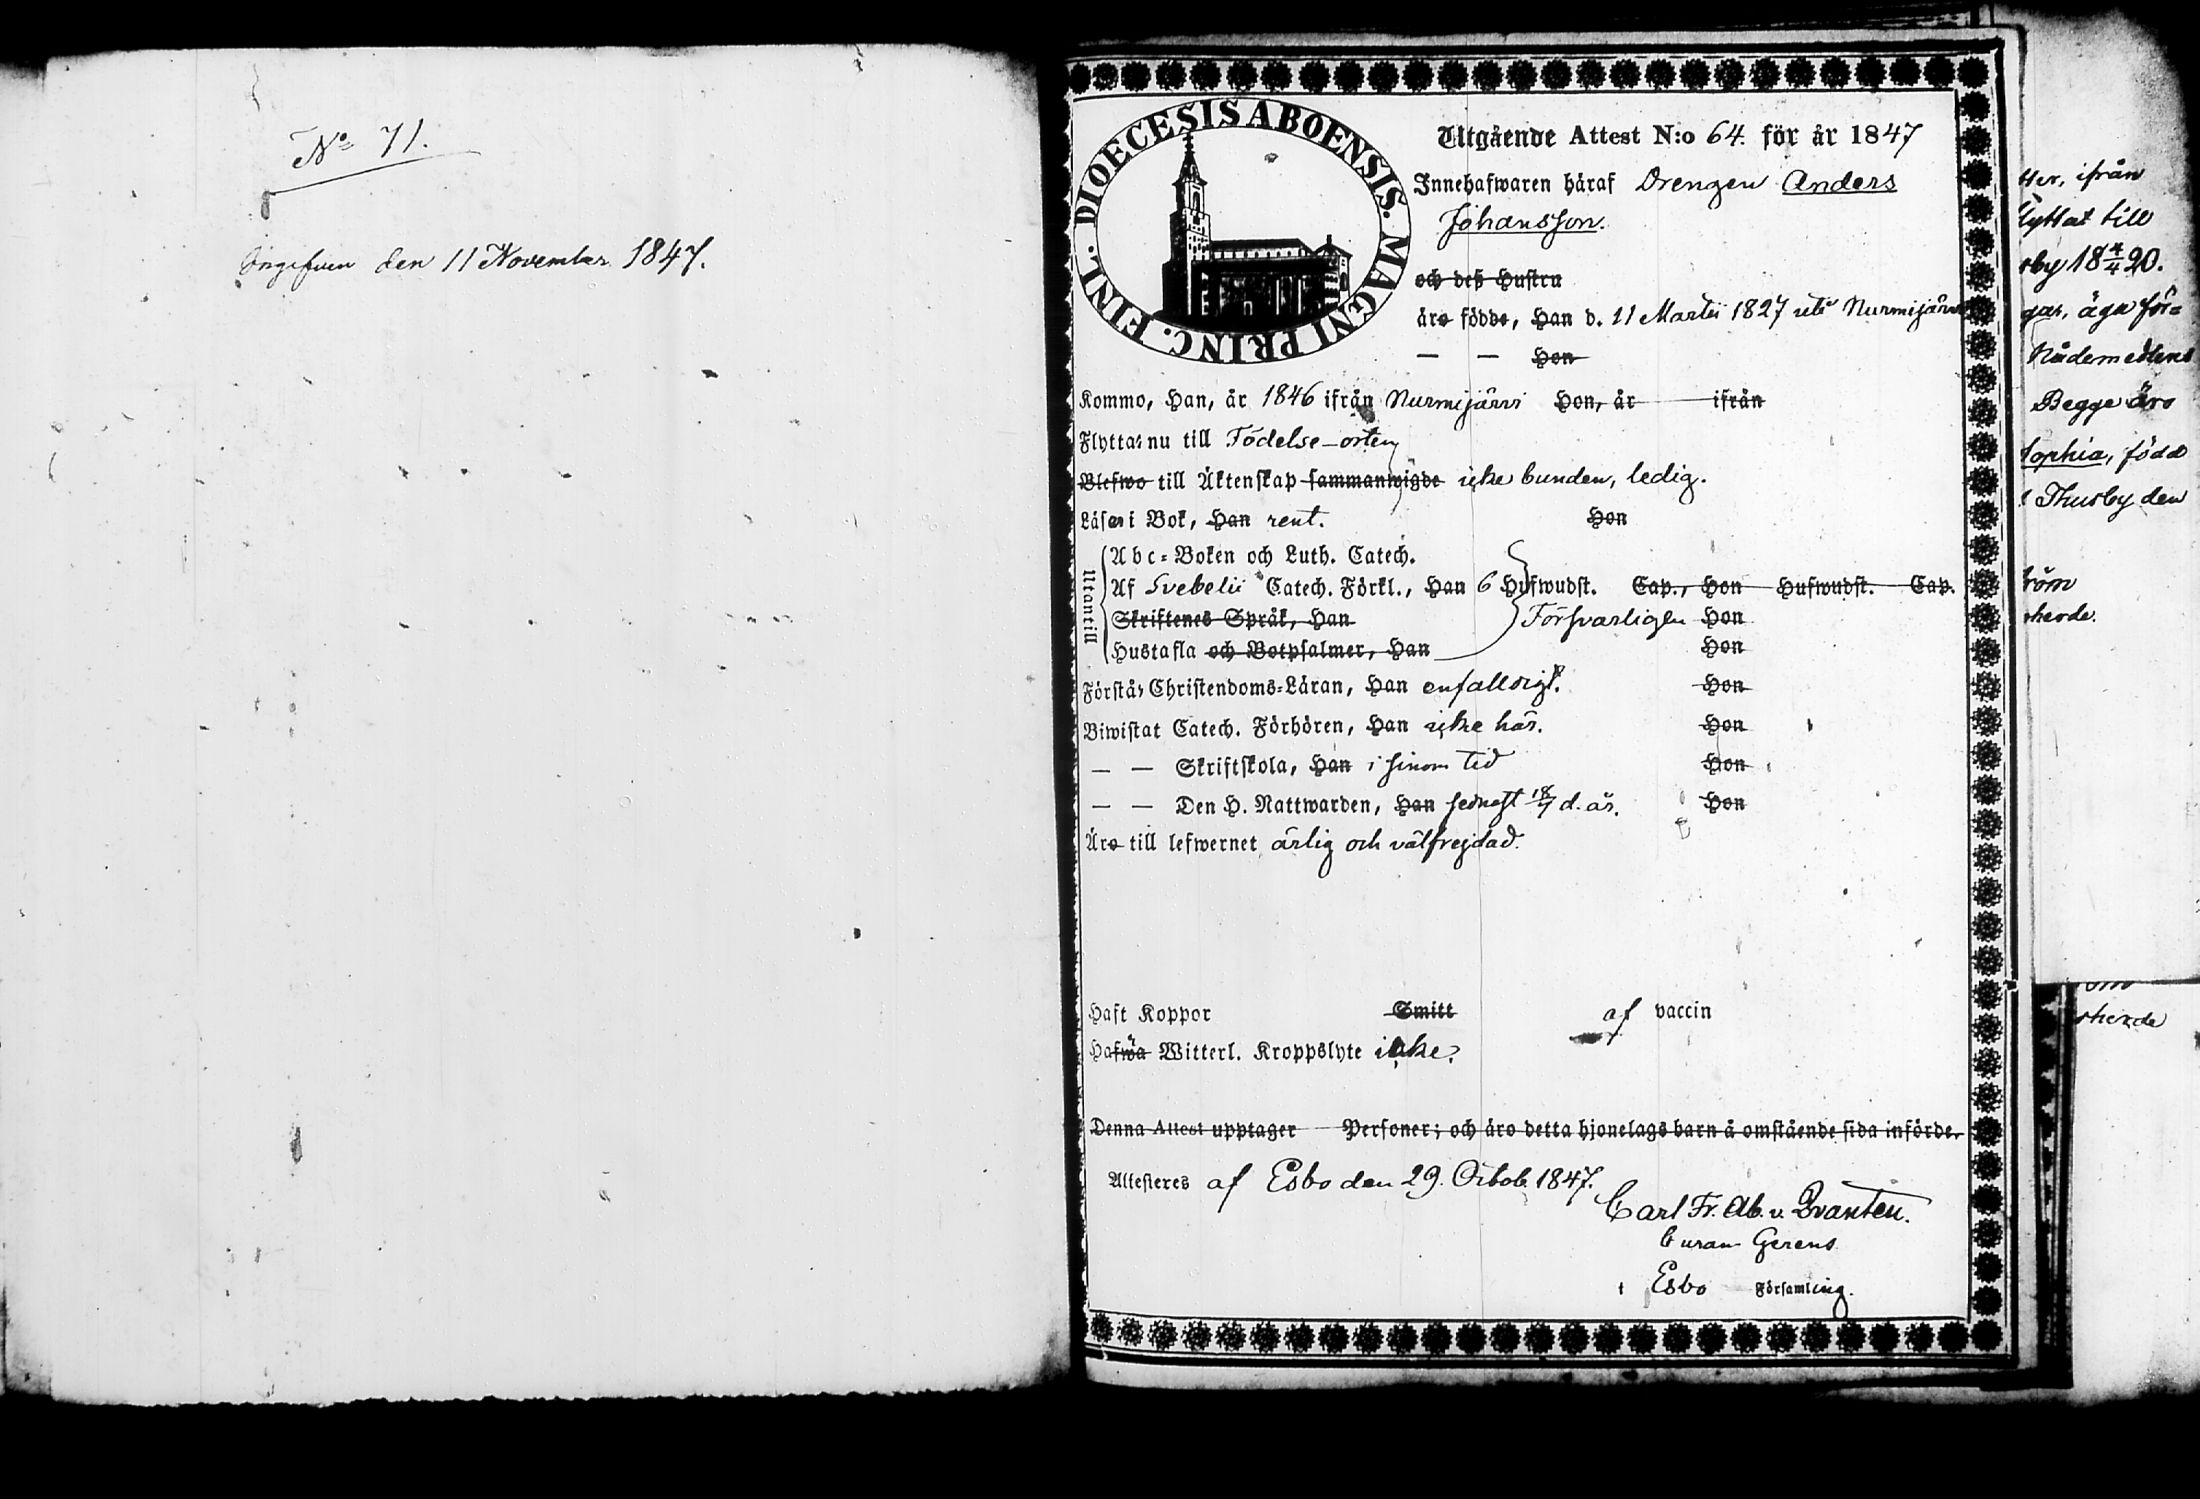 No 71.
Ingifven den 11 November 1847.
DIOECESIS ABOENSIS. MAGNI PRINC. FINL.
Utgående Attest N:o 64. för år 1847
Innehafwaren häraf Drengen Anders
Johansson.
och deß Hustru
äro födde, Han d. 11 Martii 1827 uti Nurmijärvi
— — Hon
Kommo, Han, år 1846 ifrån Nurmijärvi Hon, år ifrån
Flyttar nu till Födelse-orten
Blefwo till Äktenskap sammanwigde icke bunden, ledig.
Läser i Bok, Han rent. Hon
Utantill
Abc-Boken och Luth. Catech.
Af Svebelii Catech. Förkl., Han 6 Hufwudst. Cap., Hon Hufwudst. Cap.
Skriftenes Språk, Han Försvarligen Hon
Hustafla och Botpsalmer, Han Hon
Förstår Christendoms-Läran, Han enfalldigt. Hon
Biwistat Catech. Förhören, Han icke här. Hon
— — Skriftskola, Han i sinom tid Hon
— — Den H. Nattwarden, Han sednast 18/7 d. år. Hon
Äro till lefwernet ärlig och välfrejdad.
Haft Koppor Smitt af vaccin
Hafwa Witterl. Kroppslyte icke.
Denna Attest upptager Personer; och äro detta hjonelags barn å omstående sida införde.
Attesteres af Esbo den 29. Octob. 1847.
Carl Fr. Ab. v. Qvanten.
Curam Gerens
i Esbo Församling.
ifrån
flyttat till
by 18 4/4 20.
äga för=
Nådemedlens
Begge äro
Sophia, född
Thusby den